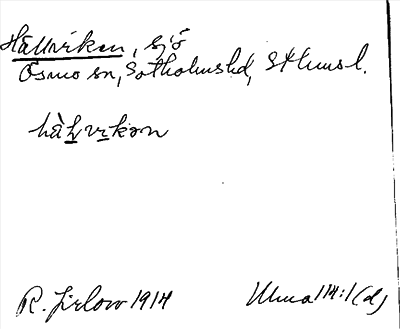 Hållviken, sjö
Ösmo sn, Sotholms hd, Sthms l.
hàlvikən
R. Jirlow 1914
Ulma 114:1 (d)